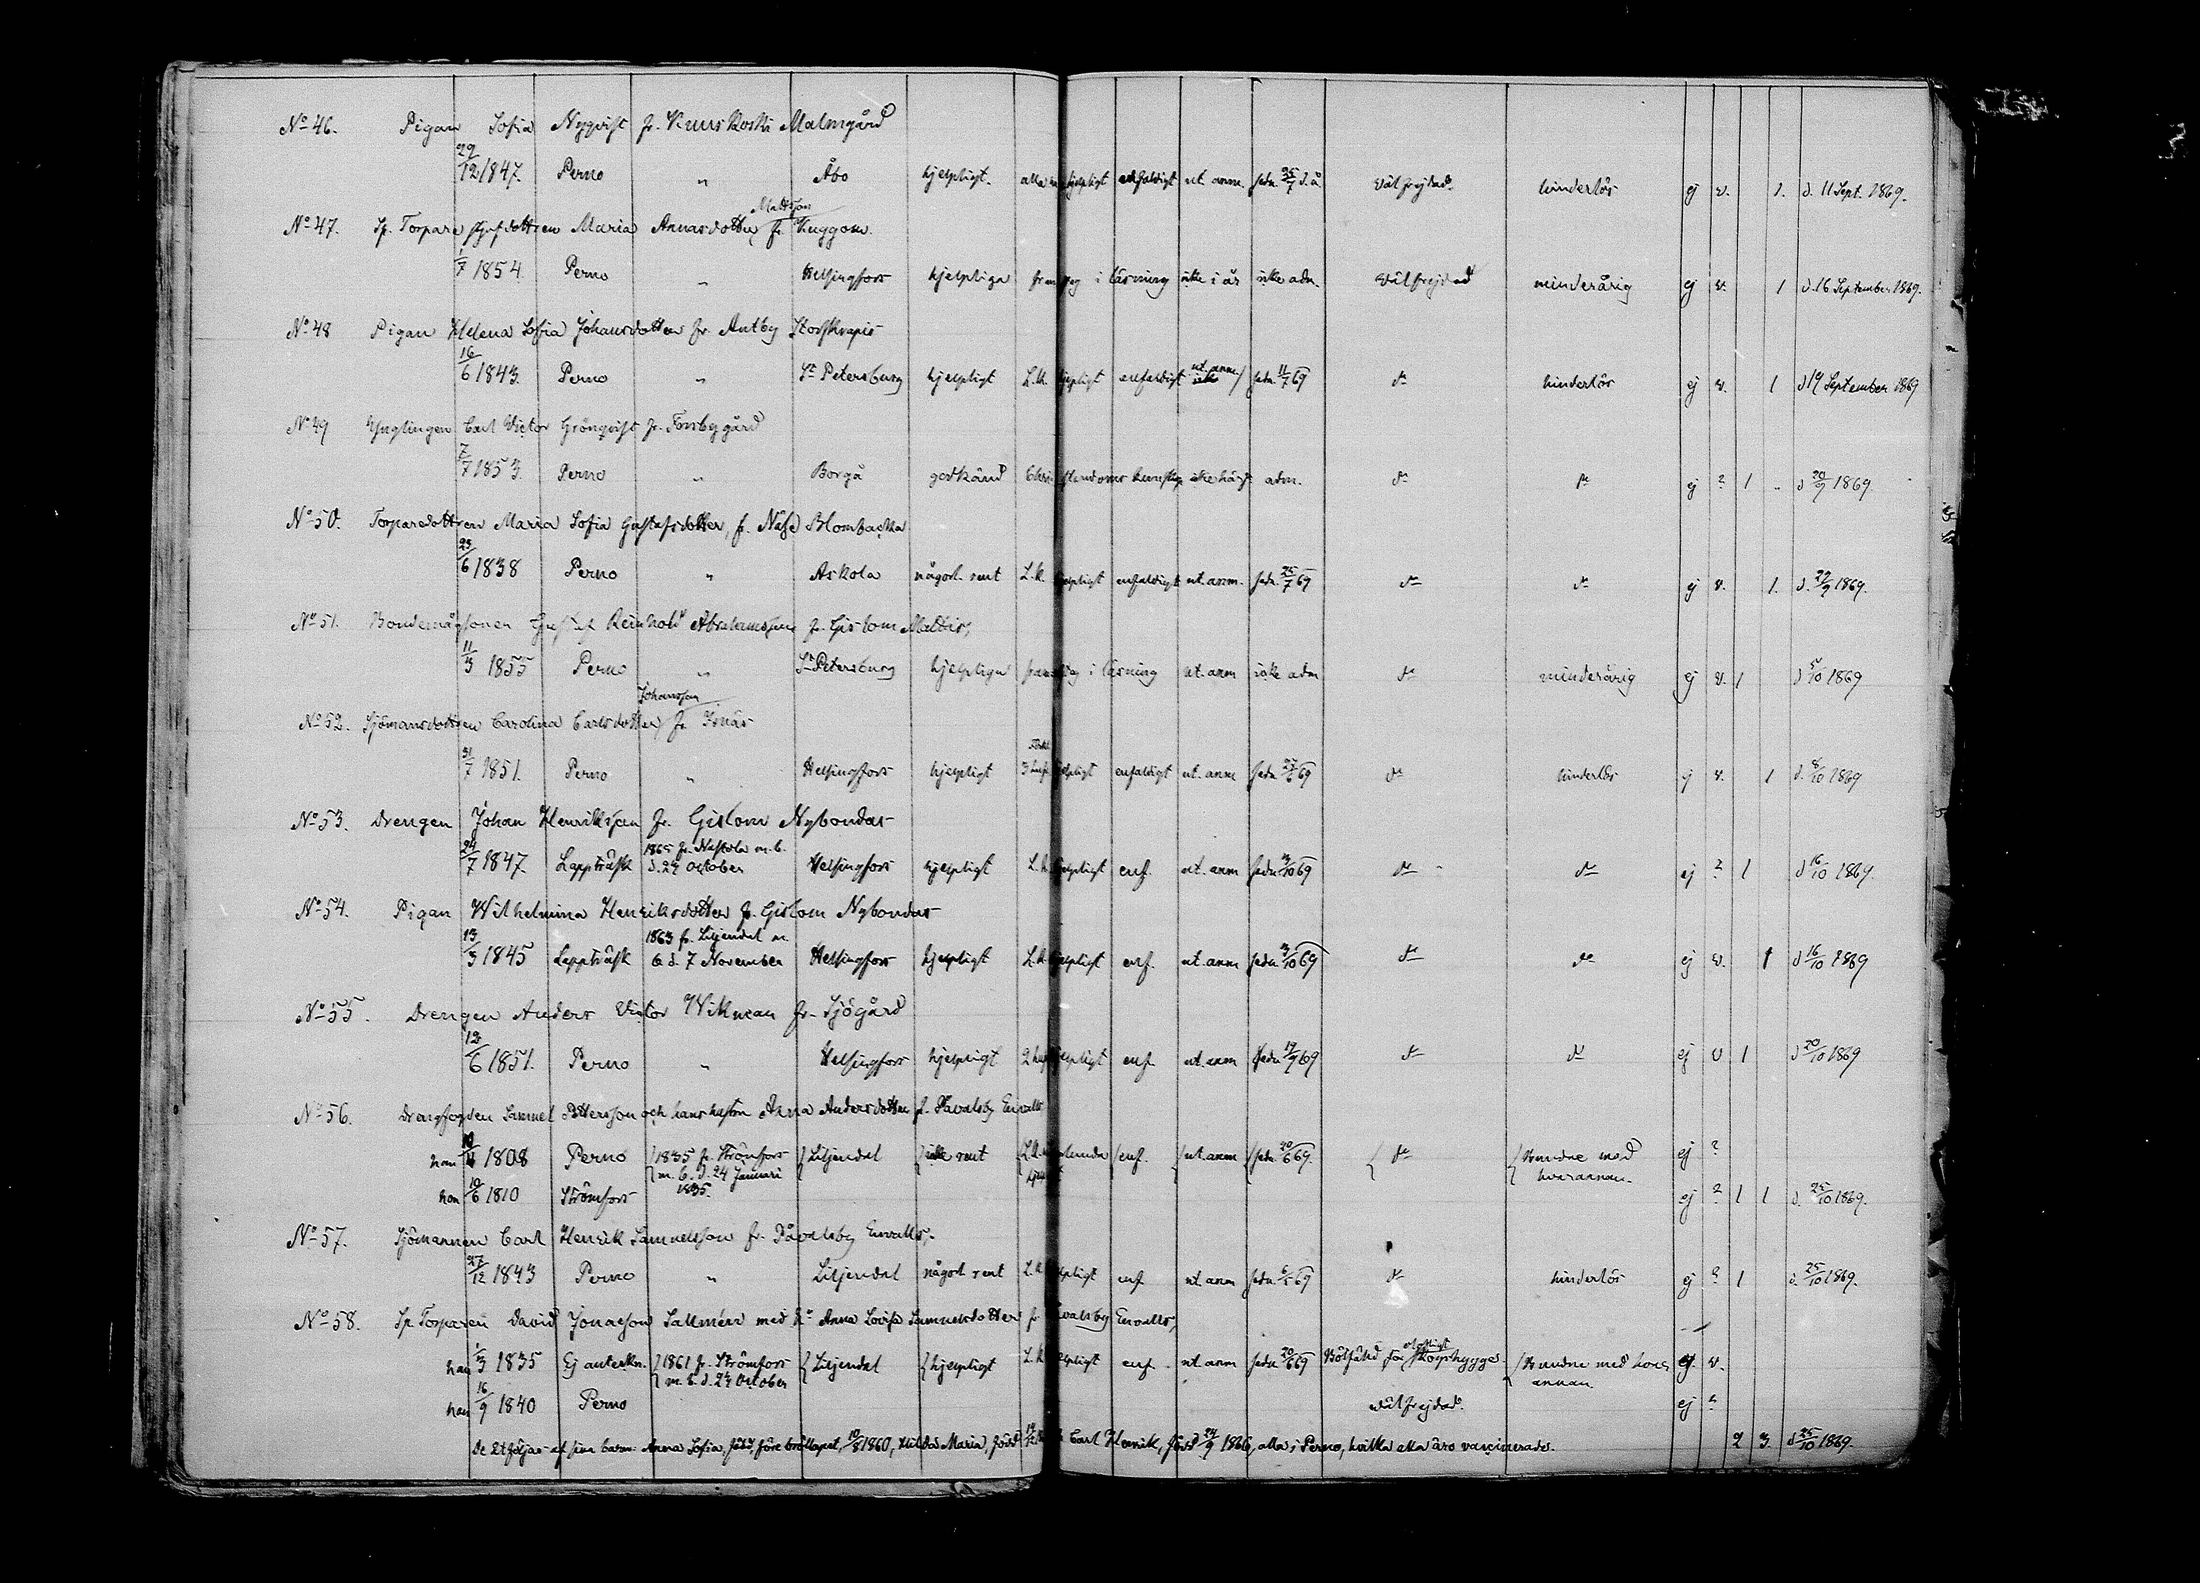 No 46. Pigan Sofia Nyqvist fr. Kuuskoski Malmgård
29/12 1847. Perno " Åbo hjelpligt. alla hjelpligt enfaldigt nt. anm. sedn. 25/7 d. å. välfrejdad. hinderlös ej v. 1. d. 11 Sept. 1869.
Mattsson
No 47. Sp. Torpare styfdottren Maria Annasdotter fr. Kuggom.
1/7 1854 Perno " Helsingfors hjelpliga framsteg i läsning icke i år icke adm. välfrejdad minderårig ej v. 1 d. 16 September 1869.
No 48 Pigan Helena Sofia Johansdotter fr. Antby Storskrapis
16/6 1843. Perno " St Petersburg hjelpligt L.K. hjelpligt enfaldigt nt. anm. sedn. 11/7 69 do hinderlös ej v. 1 d 19 September 1869
No 49 Ynglingen Carl Victor Grönqvist fr. Forsbygård
7/7 1853. Perno " Borgå godkänd Christendoms kunskap icke härst. adm. do do ej ? 1 " d 20/9 1869
No 50. Torparedottren Maria Sofia Gustafsdotter, fr. Näse Blombacka
23/6 1838 Perno " Askola någorl. rent L.K. hjelpligt enfaldigt nt. anm. sedn. 25/7 69 do do ej v. 1. d. 29/9 1869.
No 51. Bondemågsonen Gustaf Reinhold Abrahamsson fr. Gislom Mattis,
11/3 1855 Perno " St Petersburg hjelpliga framsteg i läsning nt. anm icke adm do minderårig ej v. 1 d 5/10 1869
Johansson
No 52. Sjömansdottren Carolina Carlsdotter fr. Isnäs
31/7 1851. Perno " Helsingfors hjelpligt hjelpligt enfaldigt nt. anm sedn 27/6 69 do hinderlös ej v. 1 d. 8/10 1869
No 53. Drengen Johan Henriksson fr. Gislom Nybondas
24/7 1847. Lappträsk 1865 fr. Nastola m. b. d. 24 October Helsingfors hjelpligt L.K. hjelpligt enf. nt. anm sedn 3/10 69 do do ej ? 1 d 16/10 1869.
No 54. Pigan Wilhelmina Henriksdotter fr. Gislom Nybondas
13/3 1845 Lappträsk 1863 fr. Liljendal m. b. d. 7 November Helsingfors hjelpligt L.K. hjelpligt enf. nt. anm sedn. 3/10 69 do do ej v. 1 d 16/10 1869
No 55. Drengen Anders Victor Wikman fr. Sjögård
12/6 1851. Perno " Helsingfors hjelpligt 2 huf. hjelpligt enf. nt. anm sedn 19/9 69 do do ej v 1 d 20/10 1869
No 56. Drengfogden Samuel Pettersson och hans hustru Anna Andersdotter fr. Våvalsby Envalls
han 1808 Perno 1835 fr. Strömfors m. b. d. 24 Januari 1835. Liljendal icke rent L.K. enf. nt. anm sedn. 20/6 69. do Bundne med hvarannan. ej ?
hon 10/6 1810 Strömfors ej ? 1 1 d. 25/10 1869.
No 57. Sjömannen Carl Henrik Samuelsson fr. Våvalsby Envalls,
27/12 1843 Perno " Liljendal någorl. rent L.K. hjelpligt enf nt. anm sedn. 69 do hinderlös ej ? 1 d. 25/10 1869.
No 58. Sp. Torparen David Jonasson Sallmén med h:o Anna Lovisa Samuelsdotter fr Våvalsby Envalls,
han 1/3 1835 Ej anteckn. 1861 fr. Strömfors m. b. d. 24 October Liljendal hjelpligt L.K. hjelpligt enf. nt. anm sedn 20/6 69 Bötfälld för olofligt skogshygge. Bundne med hvar annan. ej v.
hon 16/9 1840 Perno välfrejdad. ej ?
De åtföljas af sina barn: Anna Sofia, född före bröllopet, 10/8 1860, Hilda Maria, född Carl Henrik, född 24/9 1866, alla i Perno, hvilka alla äro vaccinerade. 2 3. d 25/10 1869.